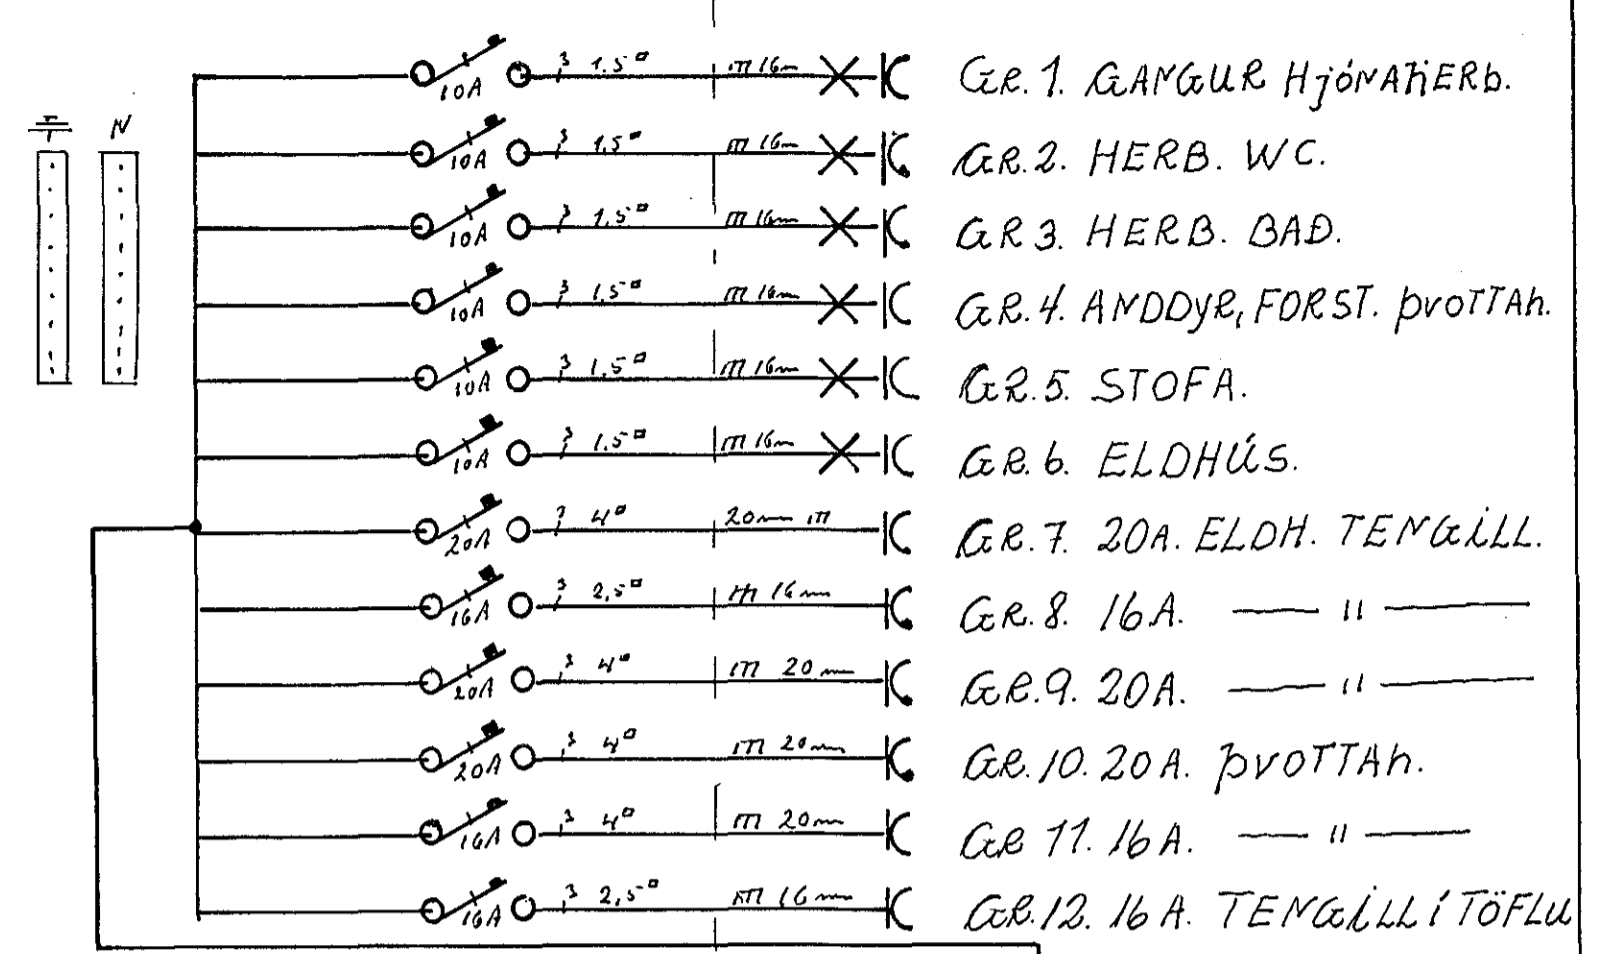 N
10A 3 1.5▫ m 16mm GR. 1. GANGUR HJÓNAHERB.
10A 3 1,5▫ m 16mm GR. 2. HERB. WC.
10A 3 1,5▫ m 16mm GR 3. HERB. BAÐ.
10A 3 1,5▫ m 16mm GR. 4. ANDDYR, FORST. ÞVOTTAh.
10A 3 1,5▫ m 16mm GR. 5. STOFA.
10A 3 1,5▫ m 16mm GR. 6. ELDHÚS.
20A 3 4▫ 20mm m GR. 7. 20A. ELDH. TENGILL.
16A 3 2,5▫ m 16mm GR. 8. 16A. — 〃 —
20A 3 4▫ m 20mm GR. 9. 20A. — 〃 —
20A 3 4▫ m 20mm GR. 10. 20A. ÞVOTTAh.
16A 3 4▫ m 20mm GR 11. 16A. — 〃 —
16A 3 2,5▫ m 16mm GR. 12. 16A. TENGILL Í TÖFLU